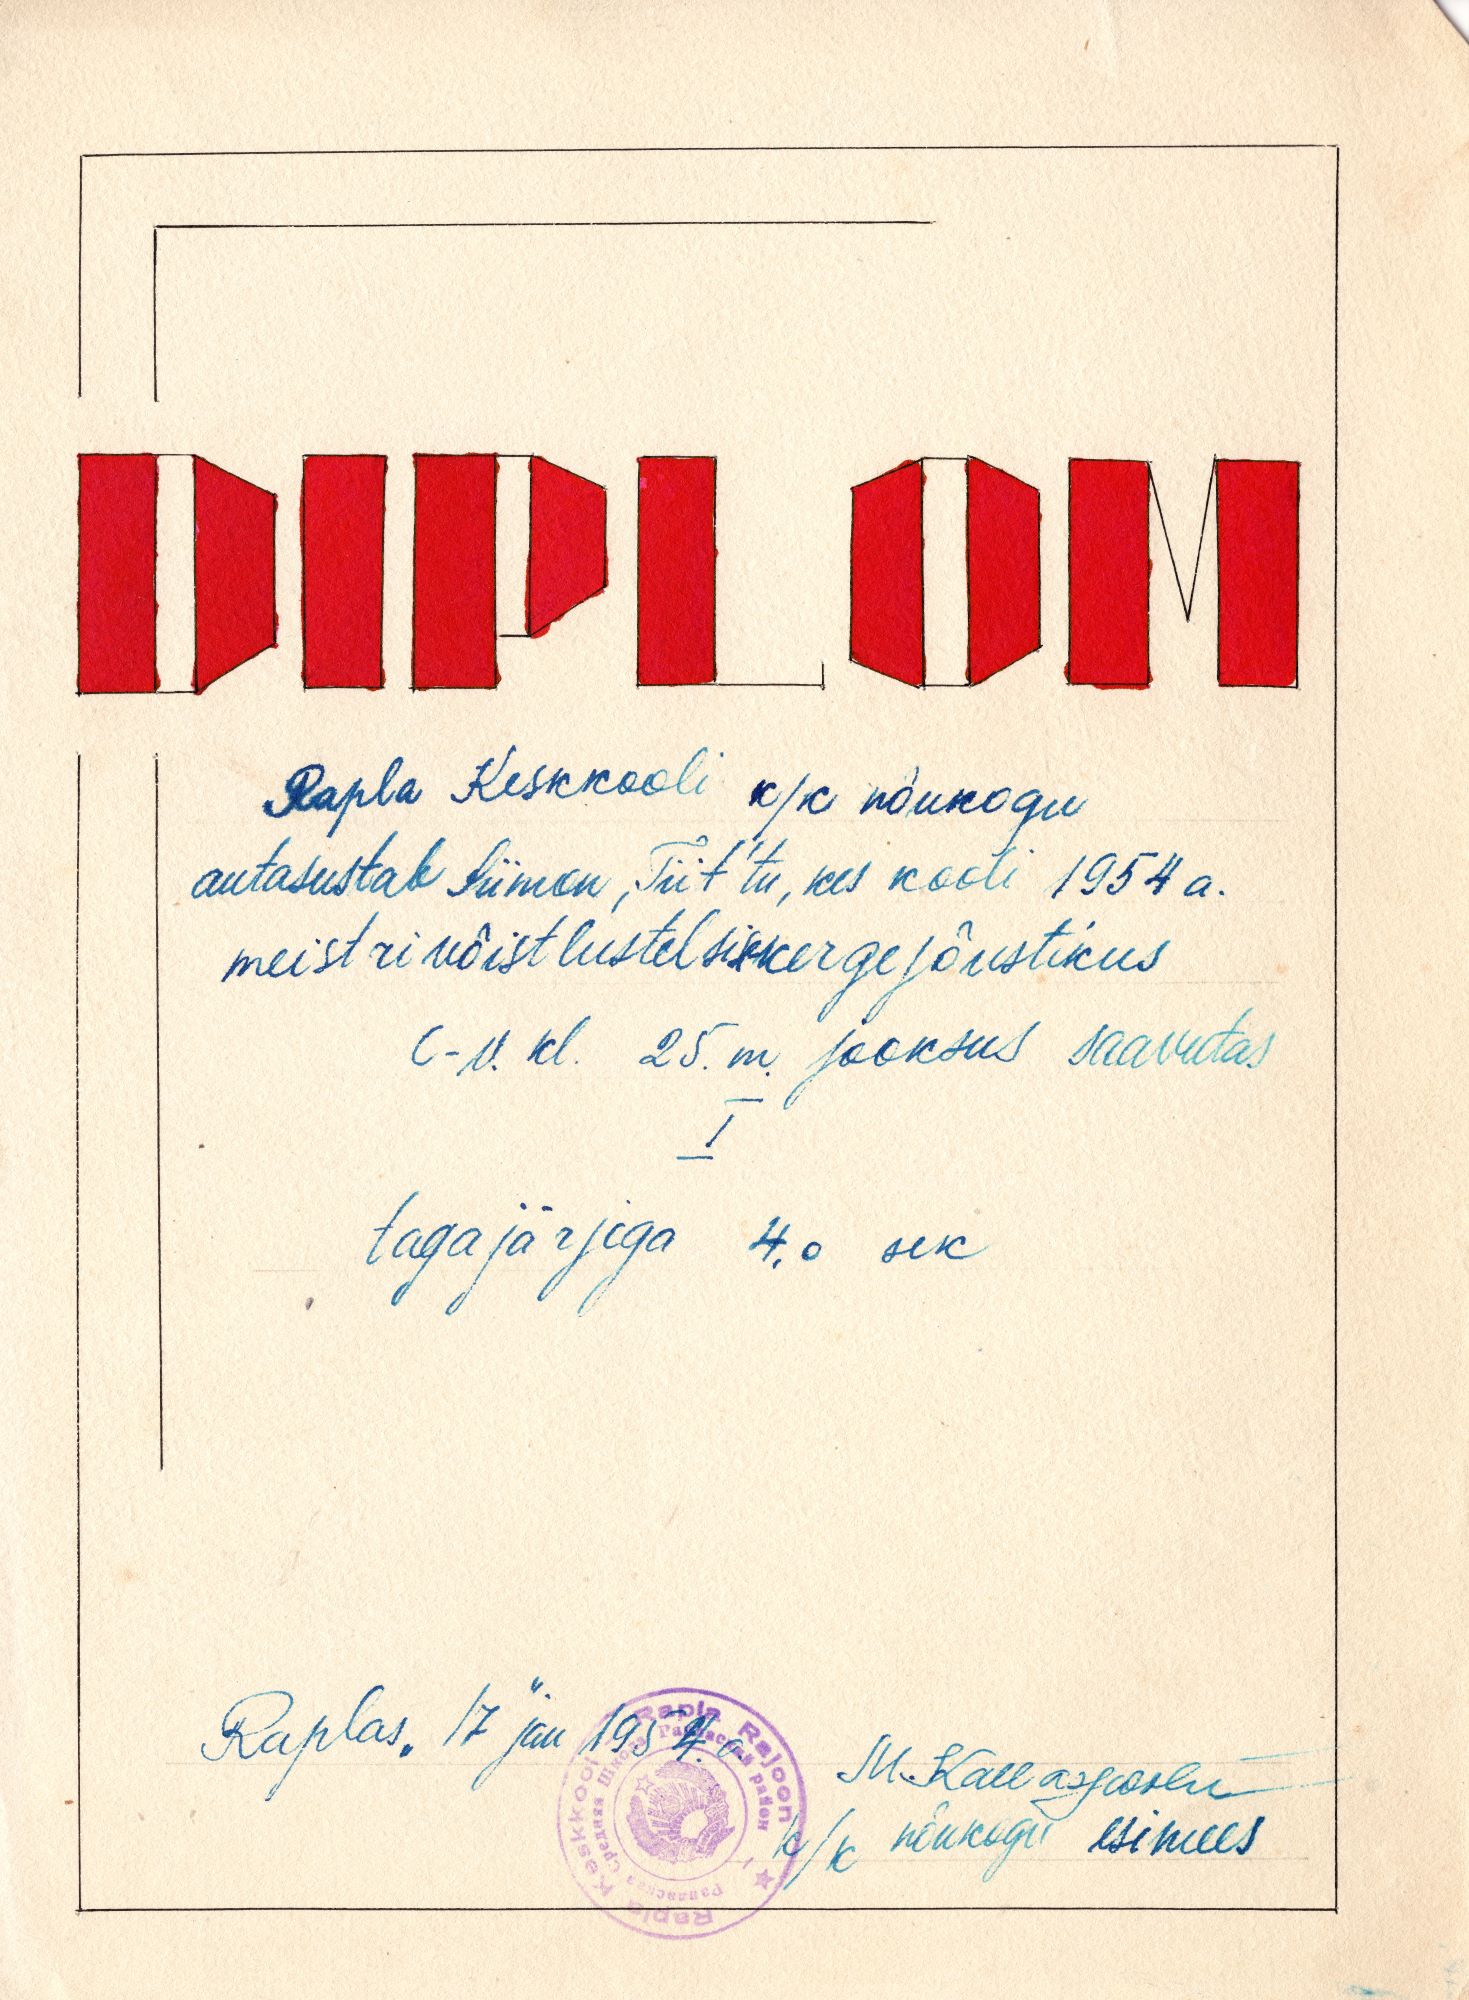 DIPLOM
Rapla Keskkooli k/k nõukogu
autasustab Siimon, Tiit'tu, kes kooli 1954 a.
meistrivõistlustel sisekergejõustikus
C-v. kl. 25. m. jooksus saavutas
I
tagajärjiga 4,0 sek
Raplas, "17" jan 1954. a.
Rapla Rajoon
Rapla Keskkool
Раплаский район
Раплаская Средняя Школа
M.
k/k nõukogu esimees